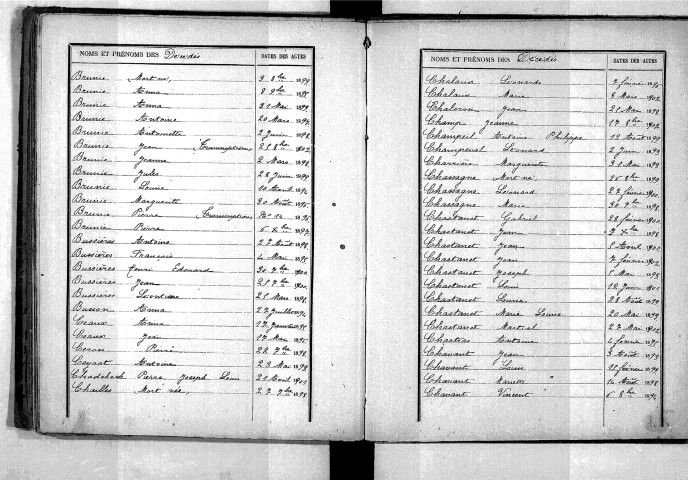 NOMS ET PRÉNOMS DES Décédés DATES DES ACTES
Brunie Mort né, 9 8bre 1899
Brunie Anna 8 9bre 1895
Brunie Anna 31 Mai 1899
Brunie Antoine 20 Mars
Brunie Antoinette 2 Juin 1898
Brunie Jean Transcription 1902
Brunie Jeanne 2 Mars 1898
Brunie Jules 28 Juin 1899
Brunie Louise 10 Avril
Brunie Marguerite 30 Août
Brunie Pierre Transcription
Brunie Pierre 6 Xbre
Bussières Antoine 27 Août 1898
Bussières François 4 Mai
Bussières Henri Edouard 30 7bre
Bussières Jean
Bussières Léontine 25 Mars
Busson Anna 27 Juillet
Ceaux Anna 17 Janvier
Ceaux Jean 17 Mai
Ceron Pierre 22 7bre 1898
Ceyrat Antoine 23 Mai 1899
Pierre Joseph Louis 21 Avril 1901
Chailles Mort née, 27 7bre 1898
NOMS ET PRÉNOMS DES Décédés DATES DES ACTES
Chalaux Léonarde 2 février
Chalaux Marie 8 Mars 1902
Jean 21 Mai 1898
Champ Jeanne 17 8bre
Champeil Antoine Philippe 12 Août
Champeval Léonard 2 Juin 1899
Marguerite 31 Mai 1899
Chassagne Mort né, 25 8bre 1899
Chassagne Léonard février
Chassagne Marie 30 9bre 1898
Chastanet Gabriel 28 février 1900
Chastanet Jean Xbre 1898
Chastanet Jean Avril 1900
Chastanet Jean 7 février 1902
Chastanet Joseph Mai 1898
Chastanet Louis 12 Juin 1901
Chastanet Louise 21 Août 1899
Chastanet Marie Louise 20 Mai 1899
Chastanet Martial 27 Mai 1902
Antoine 4 février
Chauvant Jean 3 Août 1899
Chavant Louis février
Chavant Mariette 14 Août 1898
Chavant Vincent 6 8bre